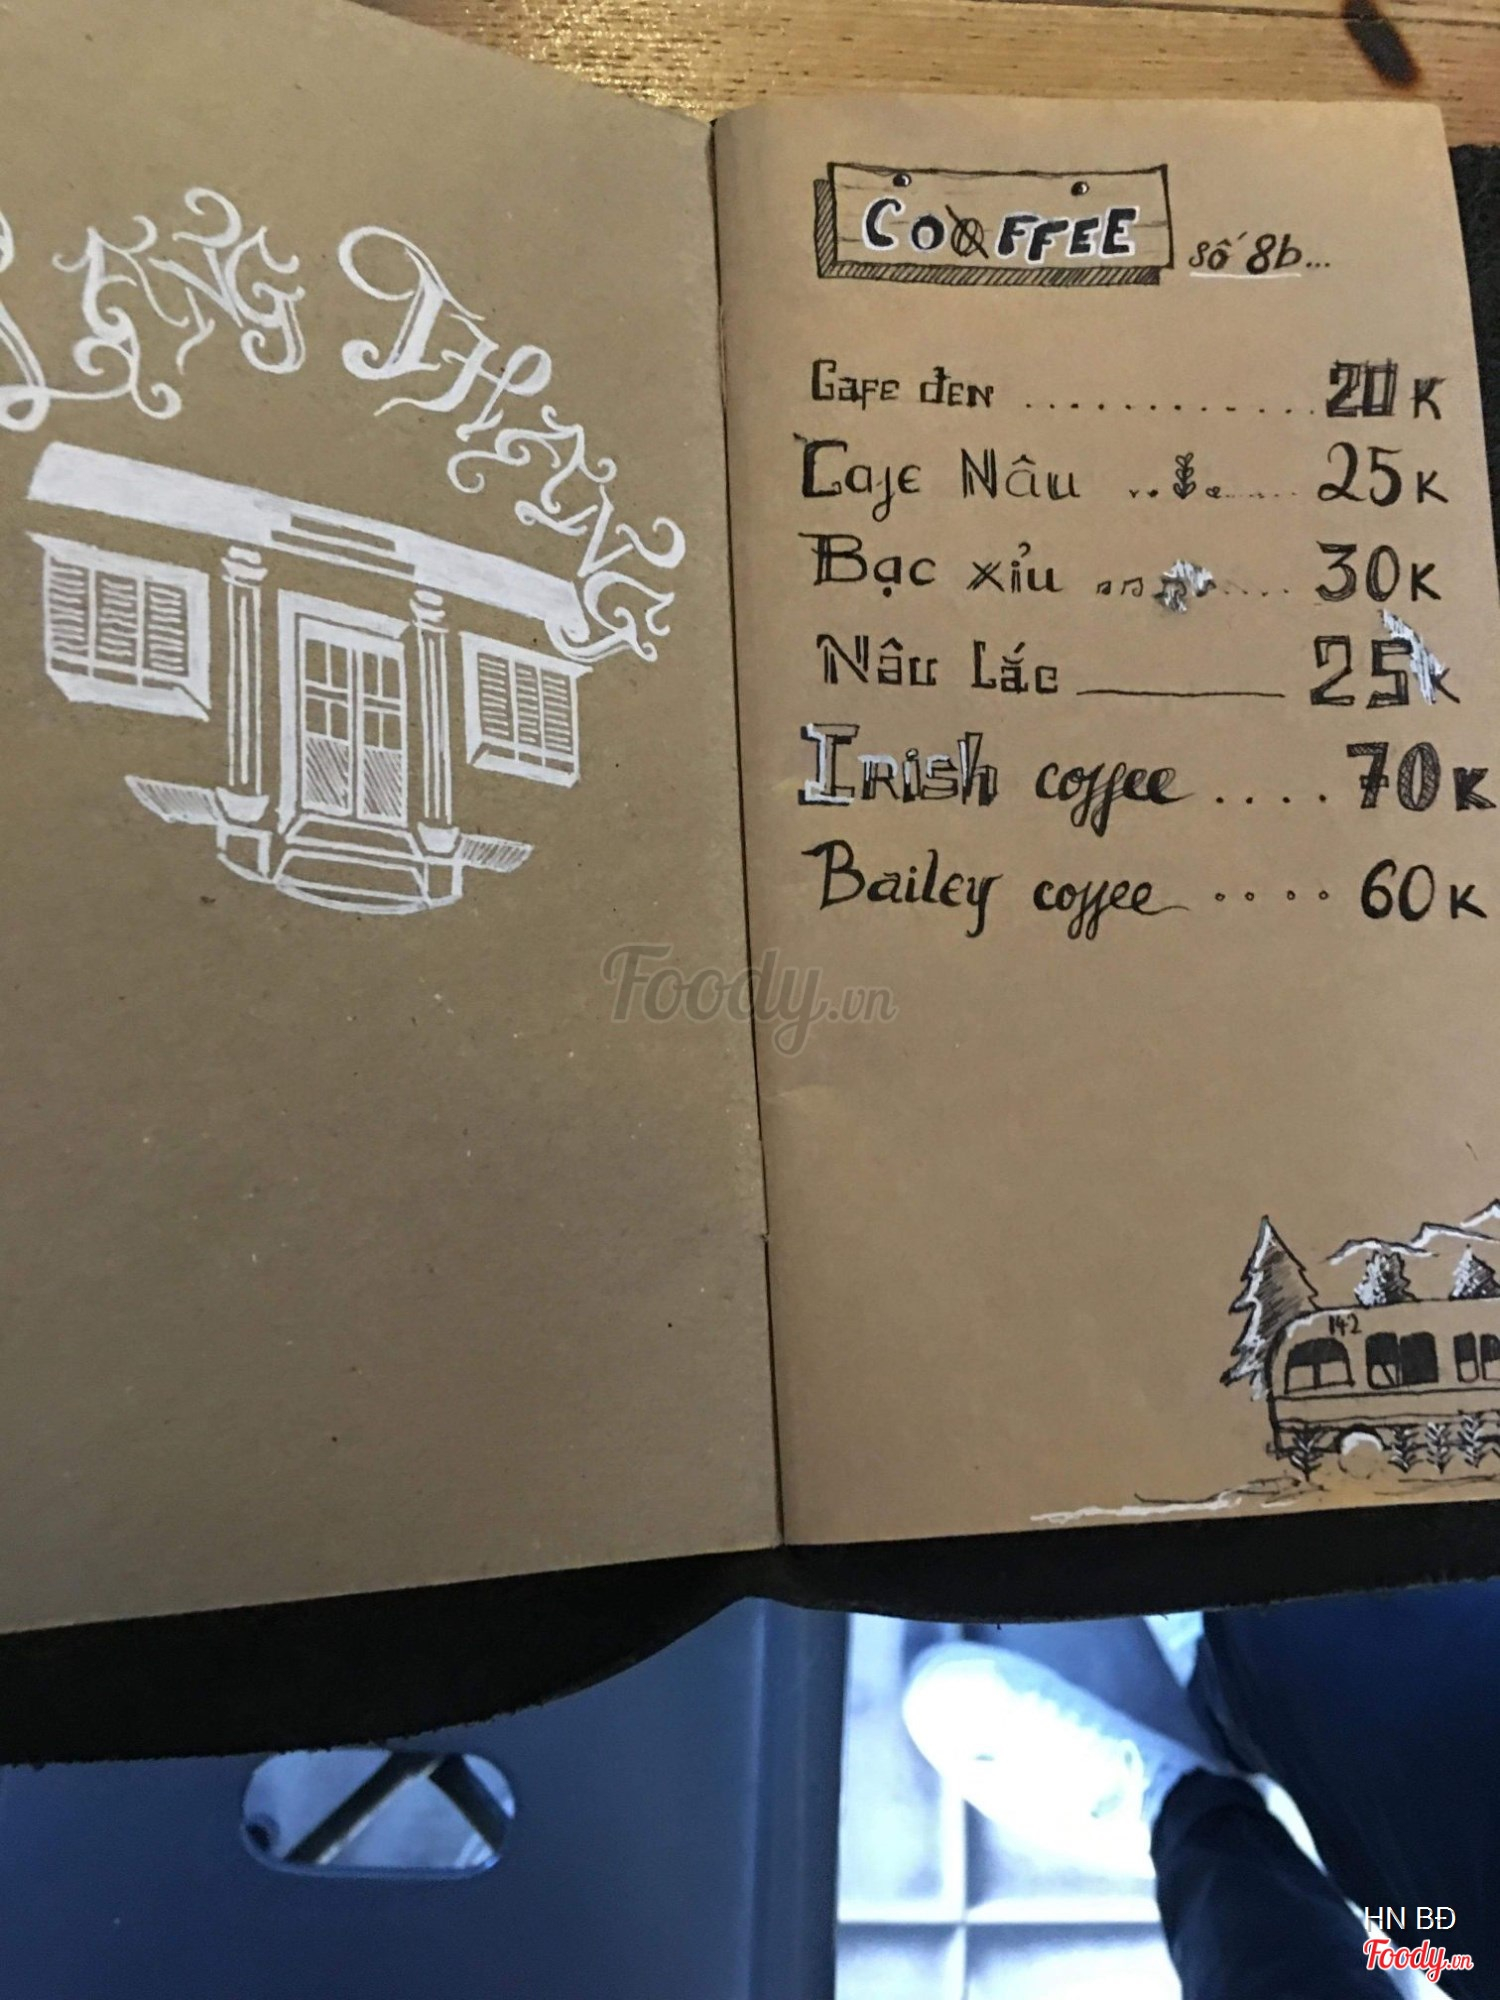 LANG THANG
COFFEE số 8b...
Cafe đen ............. 20K
Cafe Nâu ........ 25K
Bạc xỉu ........ 30K
Nâu Lắc ________ 25K
Irish coffee .... 70K
Bailey coffee .... 60K
Foody.vn
142
HN BĐ
Foody.vn